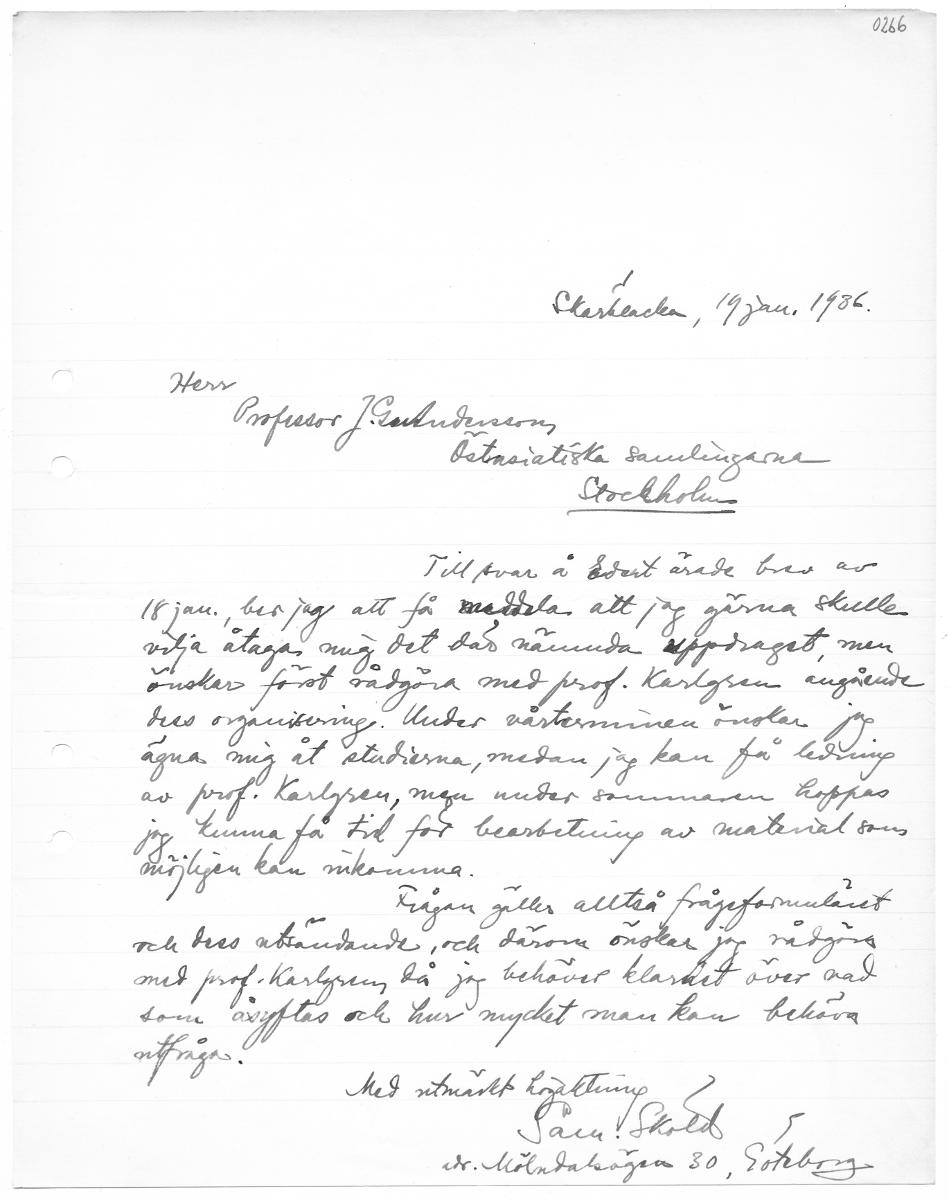 0266
Skärblacka, 19 jan. 1936.
Herr
Professor J. G. Andersson,
Östasiatiska samlingarna
Stockholm
Till svar å Edert ärade brev av
18 jan., ber jag att få meddela att jag gärna skulle
vilja åtaga mig det där nämnda uppdraget, men
önskar först rådgöra med prof. Karlgren angående
dess organisering. Under vårterminen önskar jag
ägna mig åt studierna, medan jag kan få ledning
av prof. Karlgren, men under sommaren hoppas
jag kunna få tid för bearbetning av material som
möjligen kan inkomma.
Frågan gäller alltså frågeformuläret
och dess utsändande, och därom önskar jag rådgöra
med prof. Karlgren, då jag behöver klarhet över vad
som åsyftas och hur mycket man kan behöva
utfråga.
Med utmärkt högaktning
Sam. Sköld
adr. Mölndalsvägen 30, Göteborg